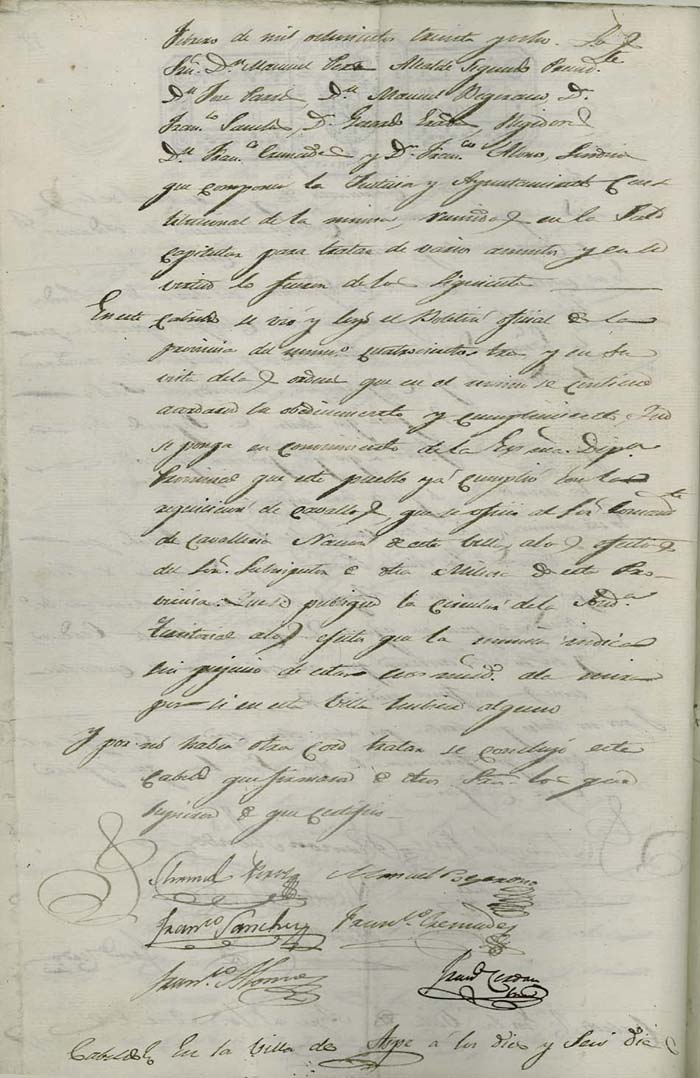 Febrero de mil ochocientos treinta y ocho. Los
Sres. Dn. Manuel Perez Alcalde Segundo Presid.te
Dn. Jose Dn. Manuel Begerano, Dn.
Fran.co Sanchez, Dn. Regidores
Dn. Fran.co y Dn. Fran.co Alonso, Sindico
que componen la Justicia y Ayuntamiento Cons
titucional de la misma, reunidos en la Sala
capitular para tratar de varios asuntos y en su
virtud lo fueron de los siguientes
En este Cabildo se vió y leyó el Boletin oficial de la
provincia del num.o cuatrocientos tres y en su
vista de las ordenes que en el mismo se contienen
acordaron la obedecimiento y cumplimiento, Que
se ponga en conocimiento de la Exma. Dipon.
Provincial que este pueblo ya cumplió con la
requisicion de cavallos, que se oficie al Sor. Comand.te
de cavalleria Nacional de esta Villa, a los efectos
del Sor. Subinspector de dha Milicia de esta Pro-
vincia. Que se publique la circular de la Aud.a
territorial a los efectos que la misma indica
sin perjuicio de estar a la mira
por si en esta Villa hubiera alguno
Y por no haber otra cosa que tratar se concluyó este
Cabildo que firmaron de dhos Sres. los que
supieron de que certifico
Manuel Perez Manuel Begerano
Franco Sanchez Franco
Franco Alonso Franco Cerdan
Cabildo En la Villa de Aspe á los diez y Seis dias